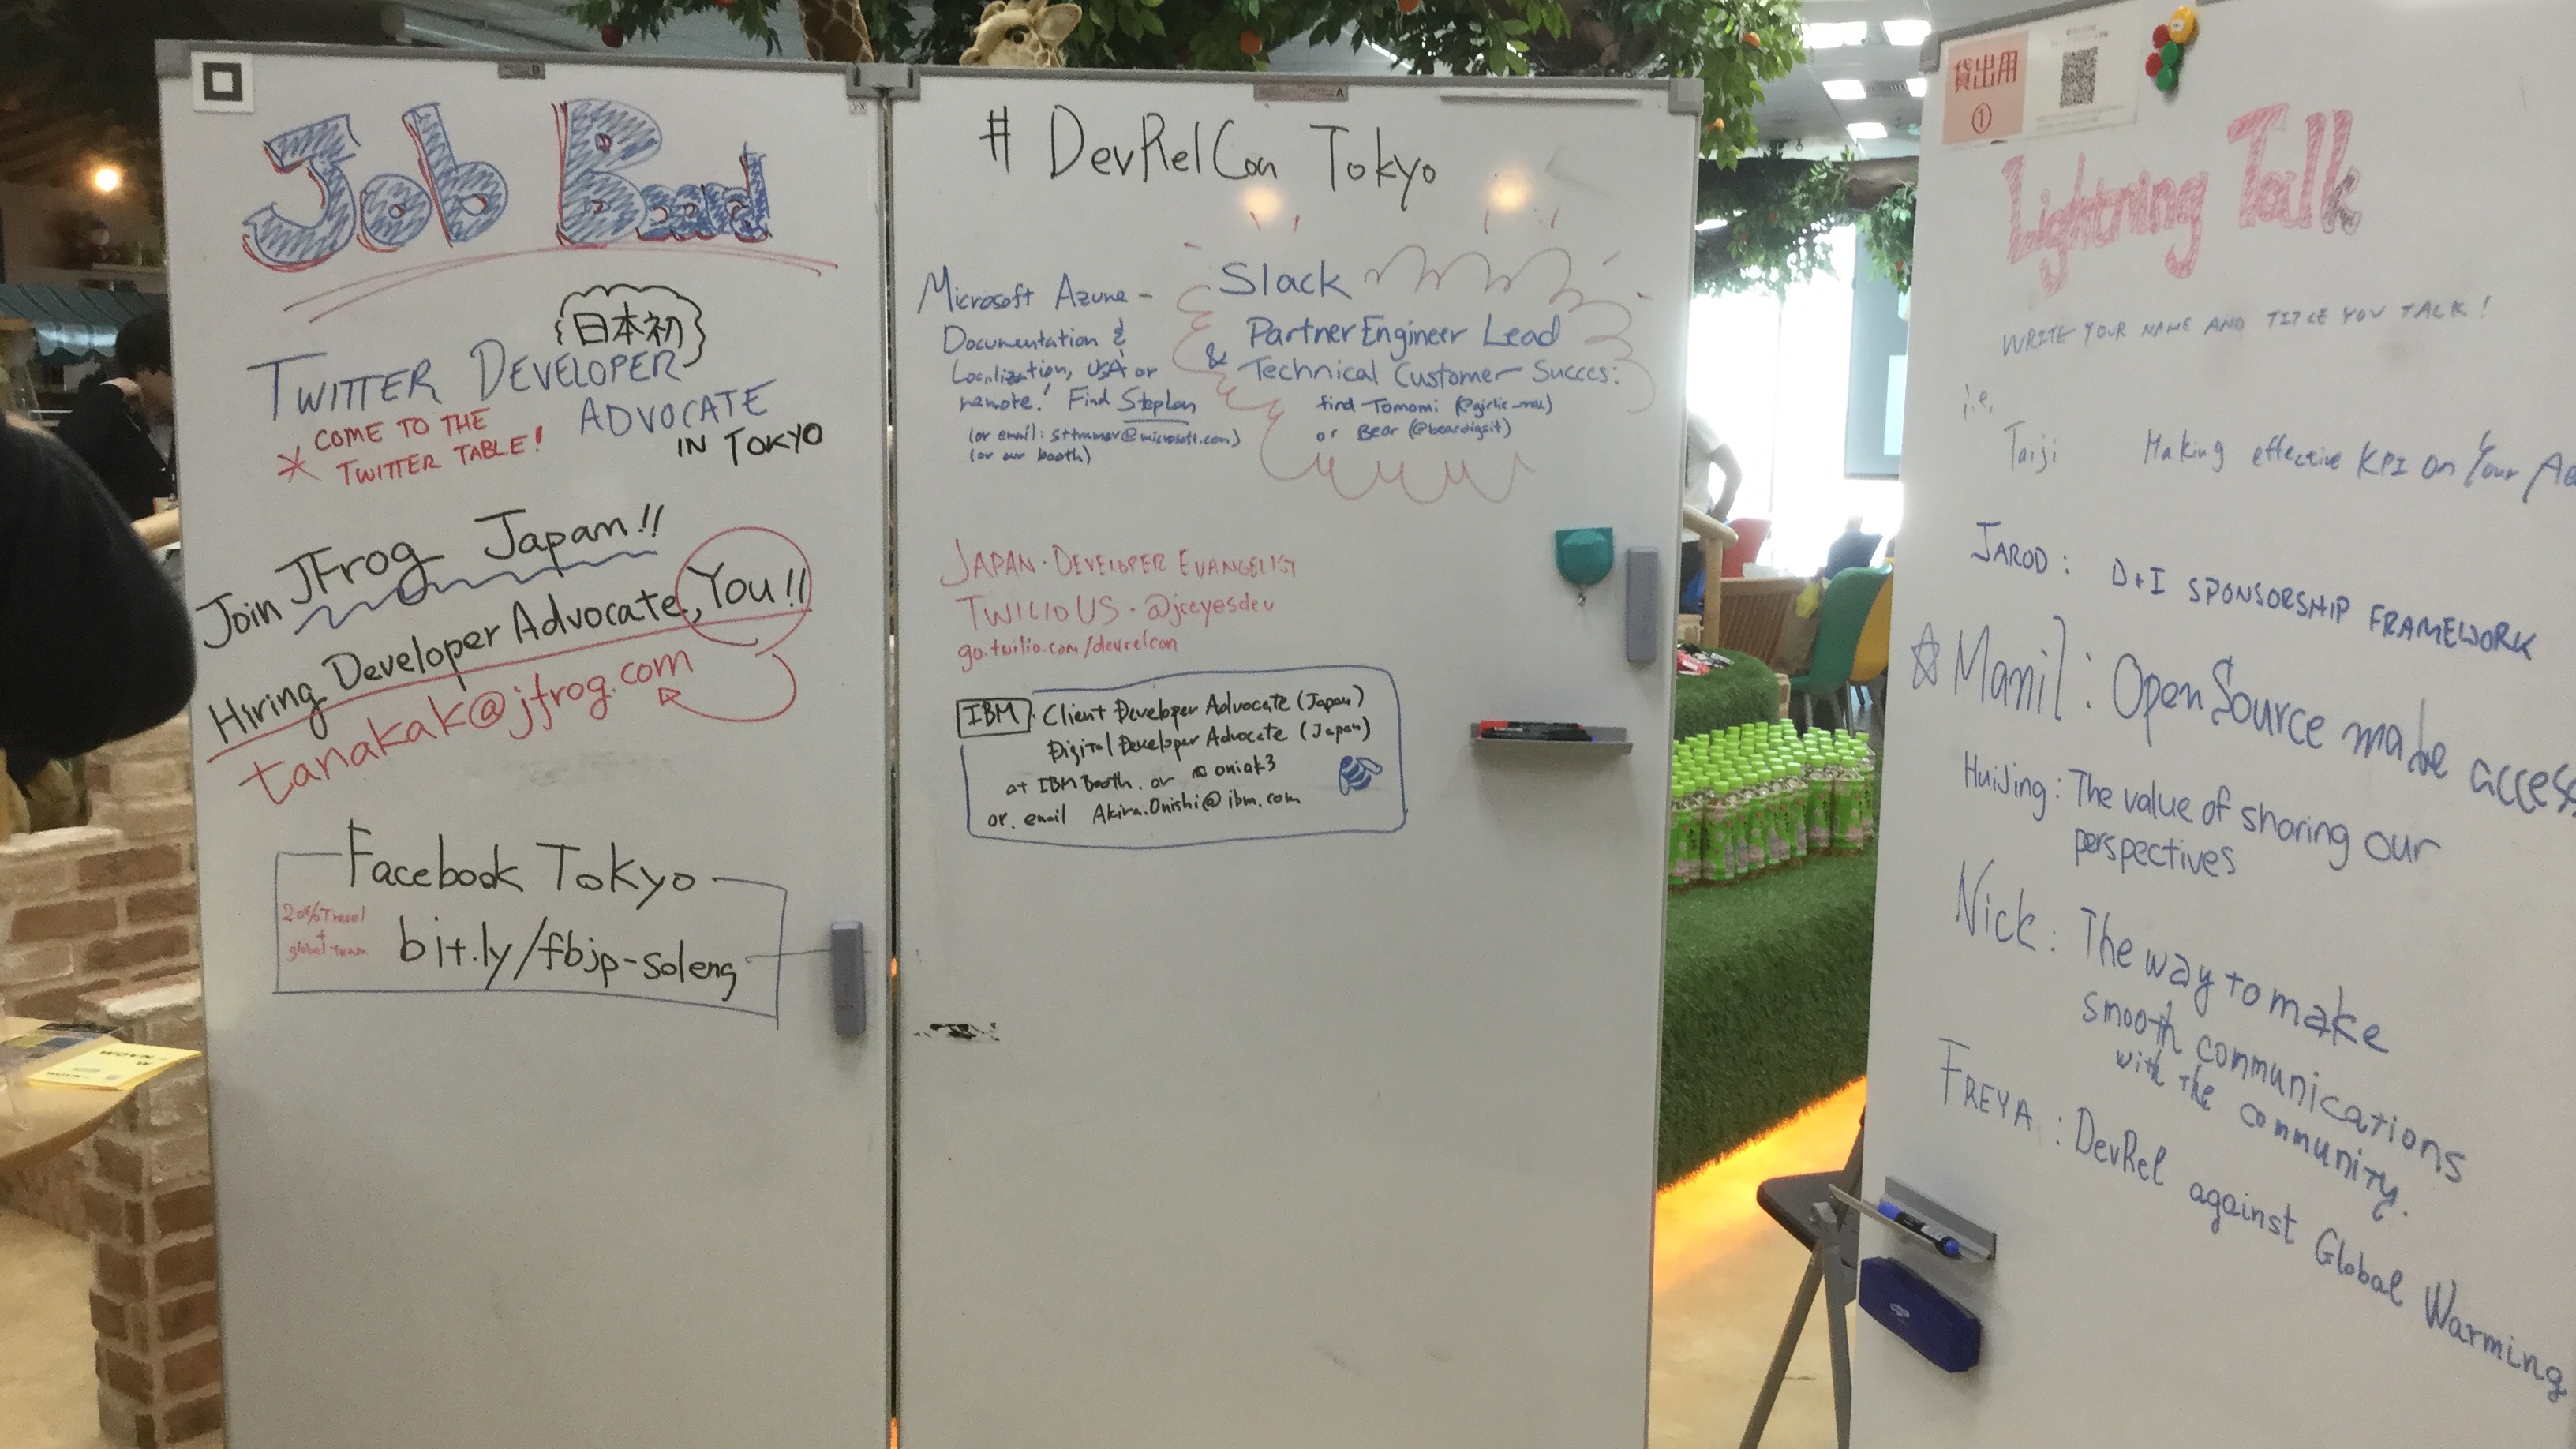 Job Board
日本初
TWITTER DEVELOPER
ADVOCATE
IN TOKYO
* COME TO THE
TWITTER TABLE!
Join JFrog Japan!!
Hiring Developer Advocate, You!!
tanakak@jfrog.com
Facebook Tokyo
20% Travel
+
global team
bit.ly/fbjp-soleng
# DevRelCon Tokyo
Microsoft Azure -
Documentation &
Localization, USA or
remote! Find
(or email: @microsoft.com)
(or our booth)
Slack
Partner Engineer Lead
& Technical Customer Success:
find Tomomi (@girlie_mac)
or Bear (@beardigsit)
JAPAN - DEVELOPER EVANGELIST
TWILIO US - @jceyesdev
go.twilio.com/devrelcon
IBM Client Developer Advocate (Japan)
Digital Developer Advocate (Japan)
at IBM Booth. or @oniak3
or. email Akira.Onishi@ibm.com
貸出用
①
Lightning Talk
WRITE YOUR NAME AND TITLE YOU TALK!
i.e,
Taiji Making effective KPI on Your
JAROD: D+I SPONSORSHIP FRAMEWORK
☆ Manil: Open Source made access
HuiJing: The value of sharing our
perspectives
Nick: The way to make
smooth communications
with the community.
FREYA: DevRel against Global Warming
WOVN